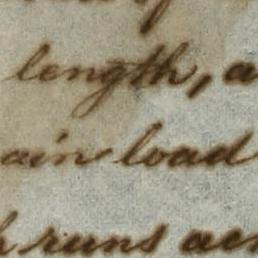 length, a
ain load
h runs acr